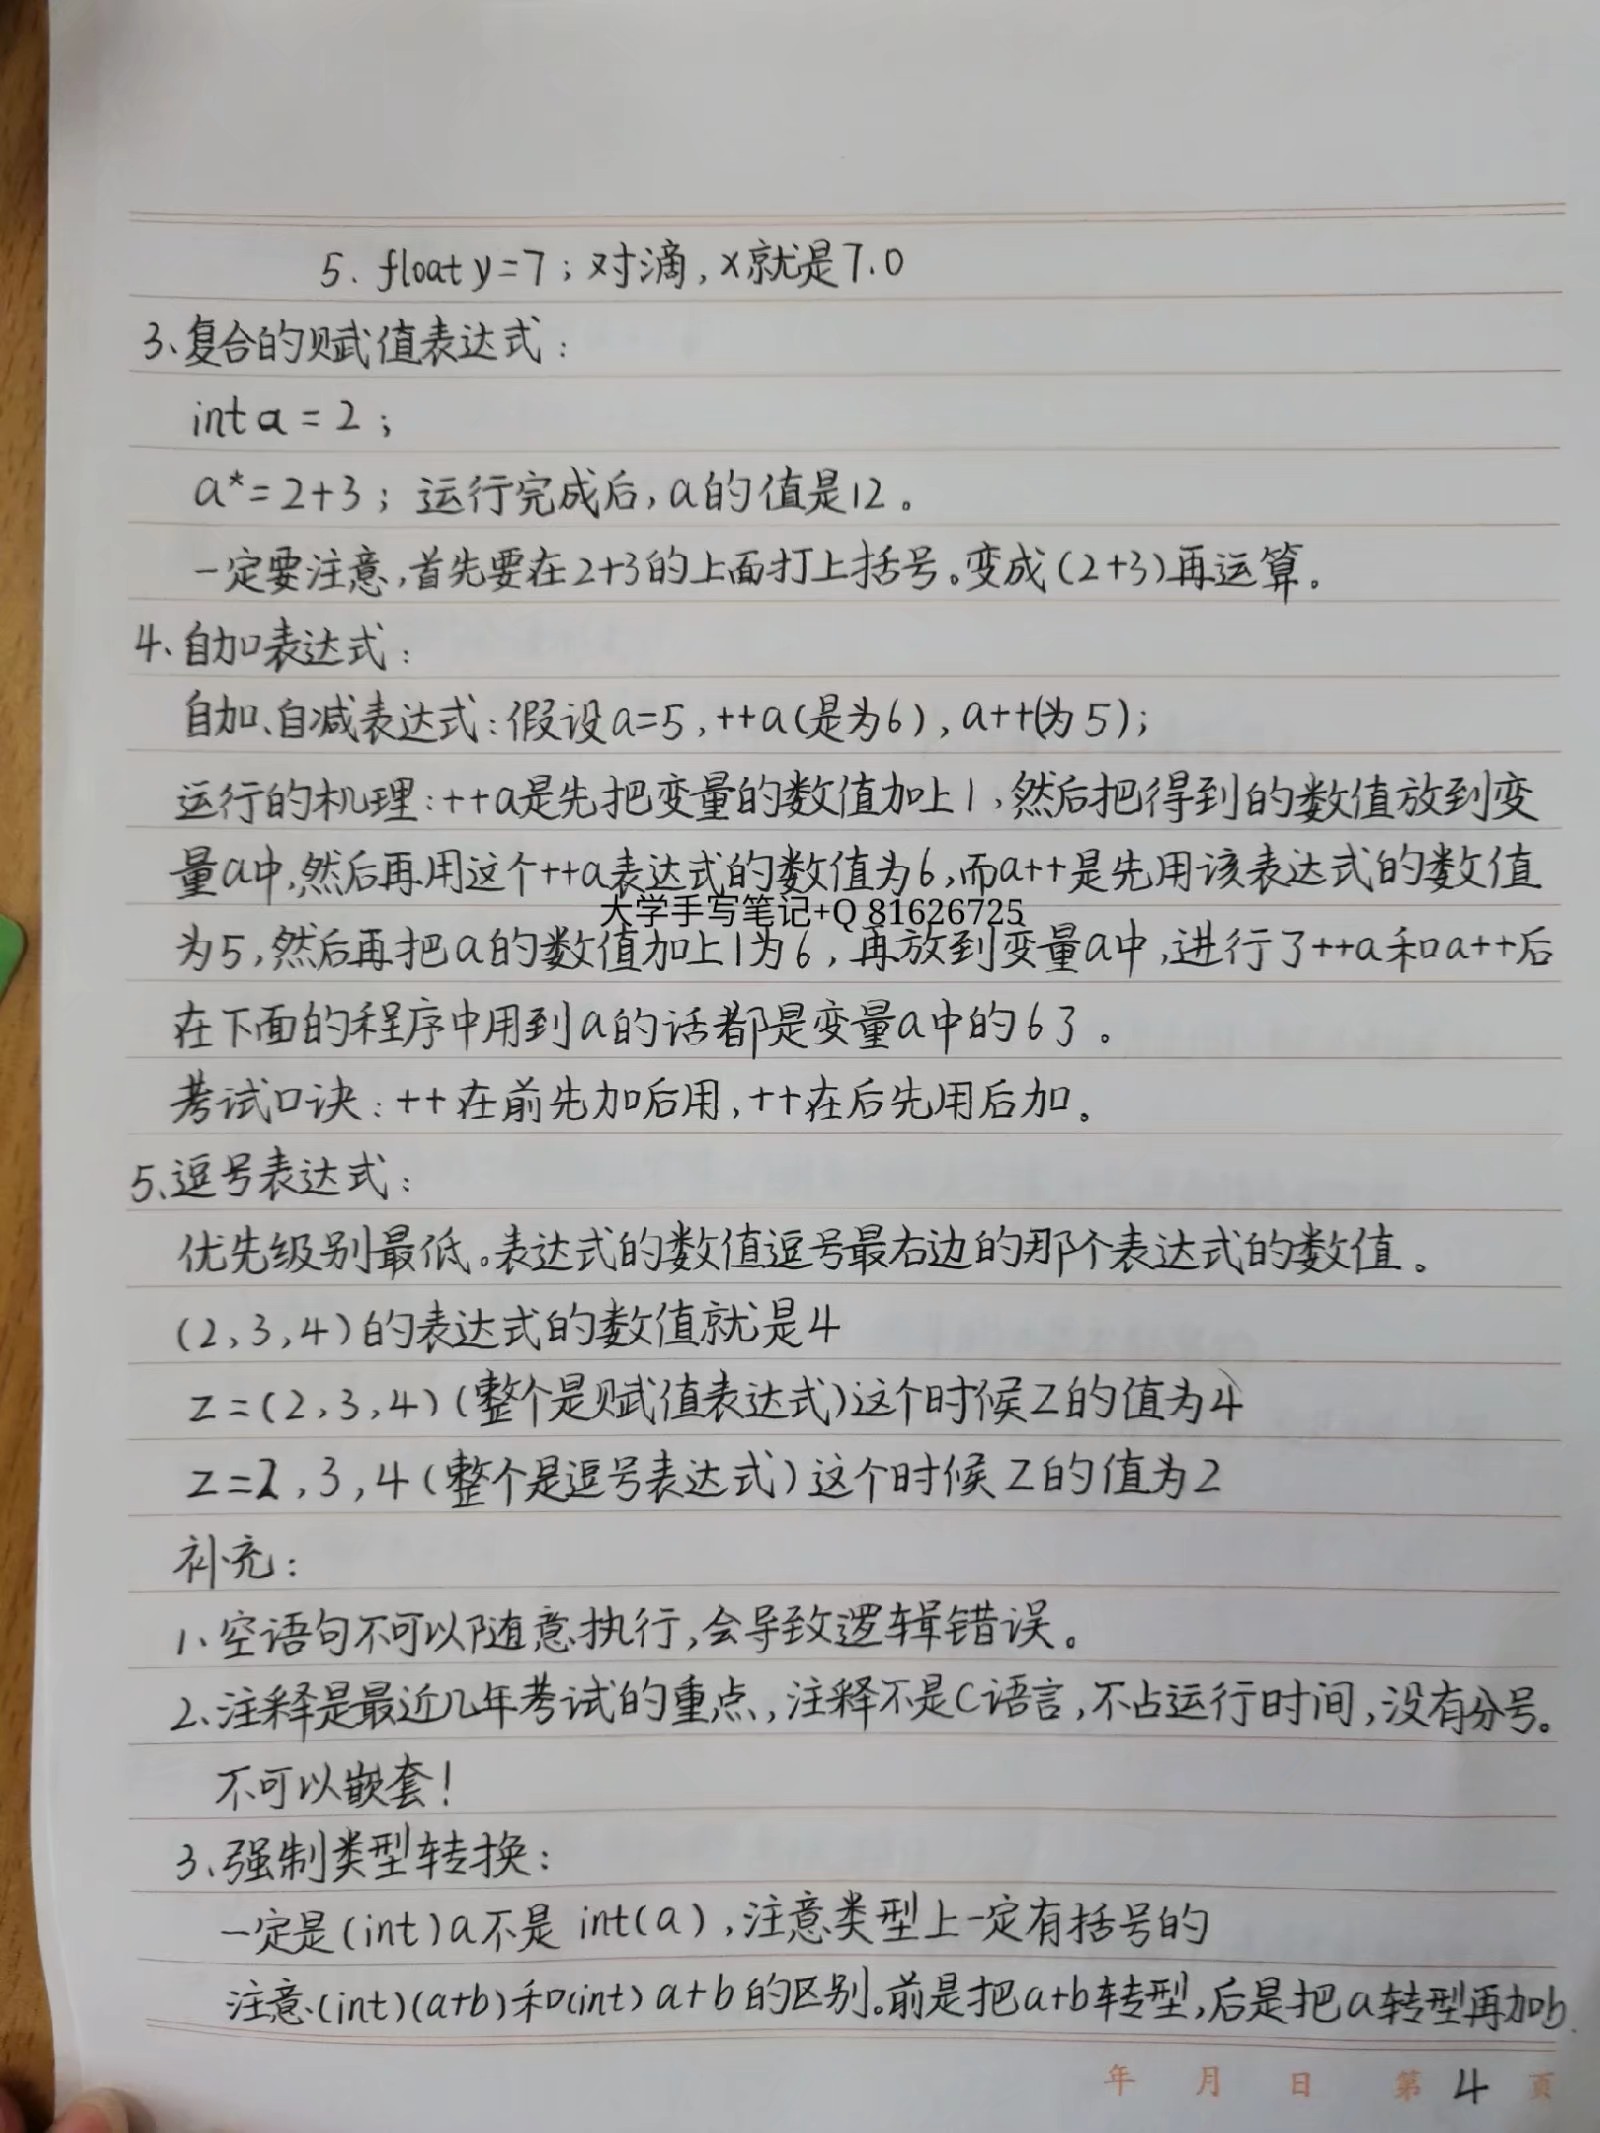 5. float y=7；对滴,x就是7.0
3、复合的赋值表达式：
int a = 2；
a*=2+3；运行完成后,a的值是12。
一定要注意,首先要在2+3的上面打上括号。变成(2+3)再运算。
4、自加表达式：
自加、自减表达式：假设a=5,++a(是为6),a++(为5)；
运行的机理：++a是先把变量的数值加上1,然后把得到的数值放到变
量a中,然后再用这个++a表达式的数值为6,而a++是先用该表达式的数值
大学手写笔记+Q 81626725
为5,然后再把a的数值加上1为6,再放到变量a中,进行了++a和a++后
在下面的程序中用到a的话都是变量a中的6了。
考试口诀：++在前先加后用,++在后先用后加。
5、逗号表达式：
优先级别最低。表达式的数值逗号最右边的那个表达式的数值。
(2,3,4)的表达式的数值就是4
z=(2,3,4)(整个是赋值表达式)这个时候z的值为4
z=2,3,4(整个是逗号表达式)这个时候z的值为2
补充：
1、空语句不可以随意执行,会导致逻辑错误。
2、注释是最近几年考试的重点,注释不是C语言,不占运行时间,没有分号。
不可以嵌套！
3、强制类型转换：
一定是(int)a不是 int(a),注意类型上一定有括号的
注意(int)(a+b)和(int)a+b的区别。前是把a+b转型,后是把a转型再加b.
年 月 日 第 4 頁